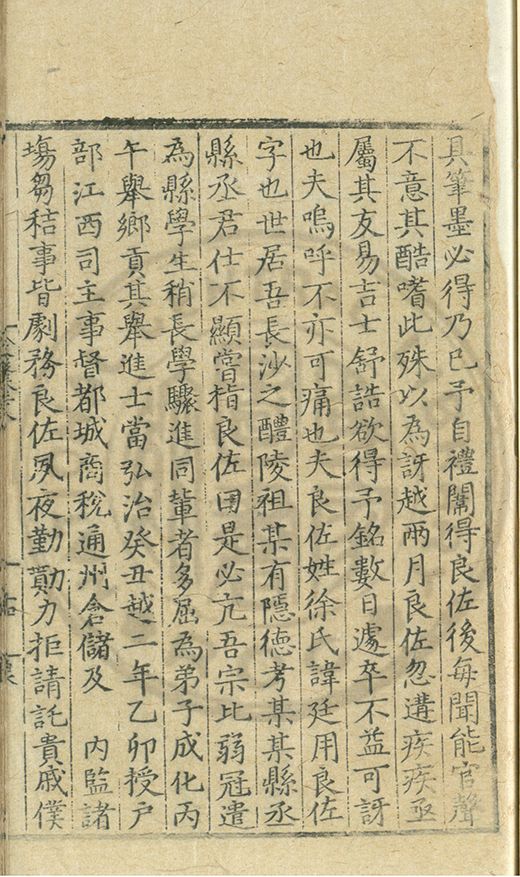 具筆墨必得乃已予自禮闈得良佐後每聞能官聲
不意其酷嗜此殊以為訝越兩月良佐忽遘疾疾亟
屬其友易吉士舒誥欲得予銘數日遽卒不益可訝
也夫嗚呼不亦可痛也夫良佐姓徐氏諱廷用良佐
字也世居吾長沙之醴陵祖某有隱德考某某縣丞
縣丞君仕不顯嘗指良佐曰是必亢吾宗比弱冠遣
為縣學生稍長學驟進同輩者多屈為弟子成化丙
午舉鄉貢其舉進士當弘治癸丑越二年乙卯授户
部江西司主事督都城商稅通州倉儲及　內監諸
塲芻秸事皆劇務良佐夙夜勤勩力拒請託貴戚僕